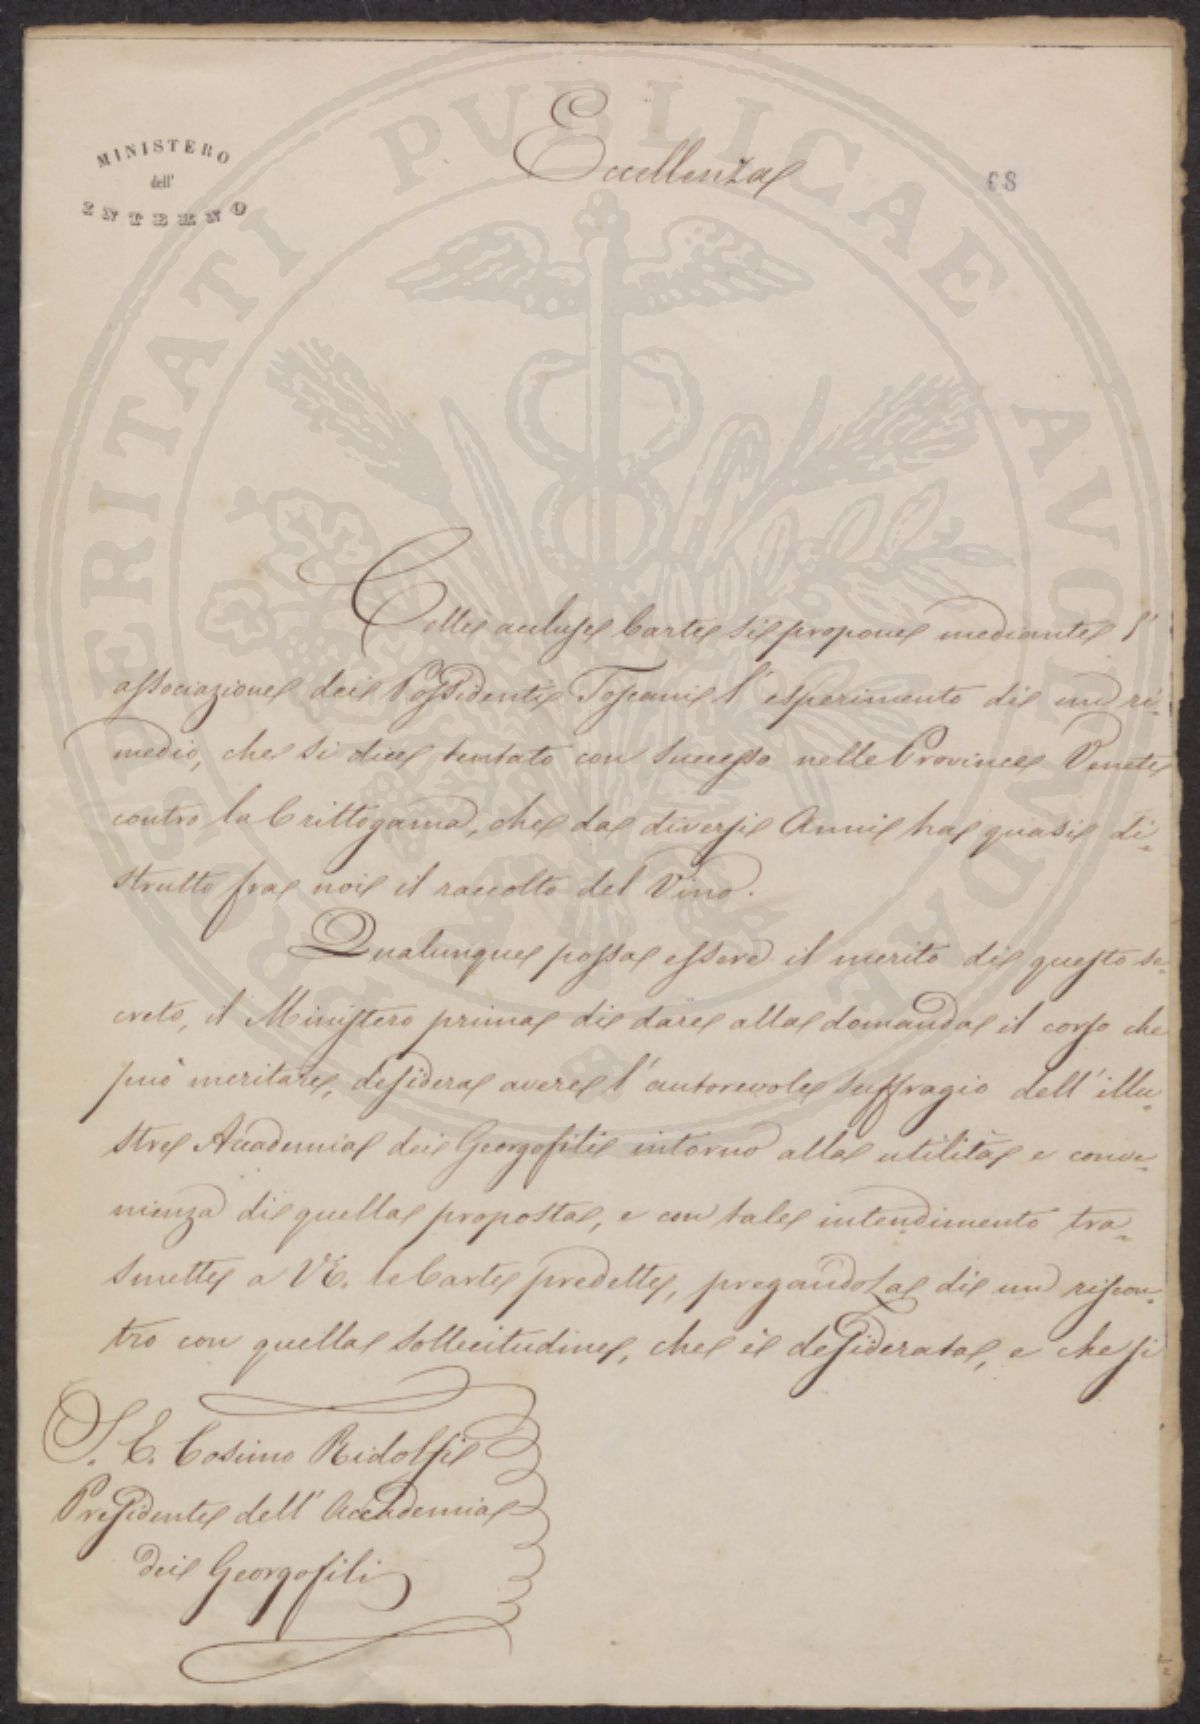 MINISTERO
dell'
INTERNO
Eccellenza
PROSPERITATI PUBLICAE AVGENDAE
Colle accluse Carte si propone mediante l'
associazione dei Possidenti Toscani l'esperimento di un ri-
medio, che si dice tentato con successo nelle Provincie Venete
contro la Crittogama, che da diversi Anni ha quasi di-
strutto fra noi il raccolto del Vino.
Qualunque possa essere il merito di questo se-
creto, il Ministero prima di dare alla domanda il corso che
può meritare, desidera avere l'autorevole suffragio dell'illu-
stre Accademia dei Georgofili intorno alla utilità e conve-
nienza di quella proposta, e con tale intendimento tra-
smette a V.E. le Carte predette, pregandoLa di un riscon-
tro con quella sollecitudine, che è desiderata, e che si
S. E. Cosimo Ridolfi
Presidente dell'Accademia
dei Georgofili